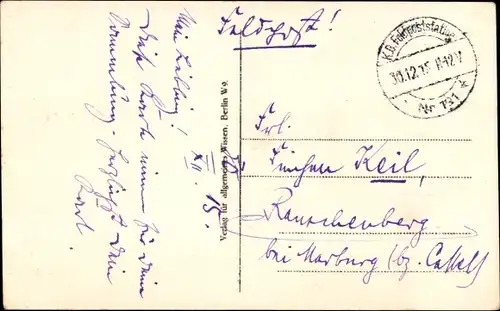 Feldpost!
K.D. Feldpoststation
30.12.15 11-12 V
* Nr 131 *
Mein Liebling!
XII. 15.
Diese Karte nimm für Deine
Sammlung. Herzlichst Dein
Karl.
Verlag für allgemeines Wissen. Berlin W9.
Frl.
Finchen Keil,
Rauschenberg
bei Marburg (bz. Cassel)